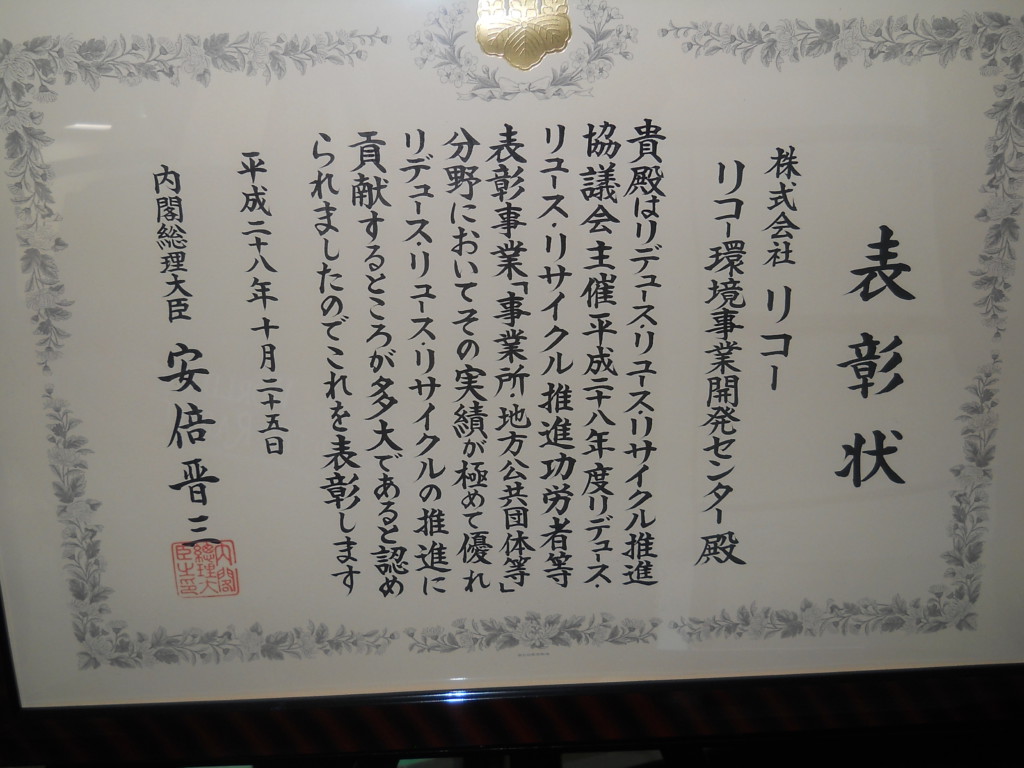 表彰状
株式会社 リコー
リコー環境事業開発センター 殿
貴殿はリデュース・リユース・リサイクル推進
協議会主催平成二十八年度リデュース・
リユース・リサイクル推進功労者等
表彰事業「事業所・地方公共団体等」
分野においてその実績が極めて優れ
リデュース・リユース・リサイクルの推進に
貢献するところが多大であると認め
られましたのでこれを表彰します
平成二十八年十月二十五日
内閣総理大臣 安倍晋三
内閣
総理大
臣之印